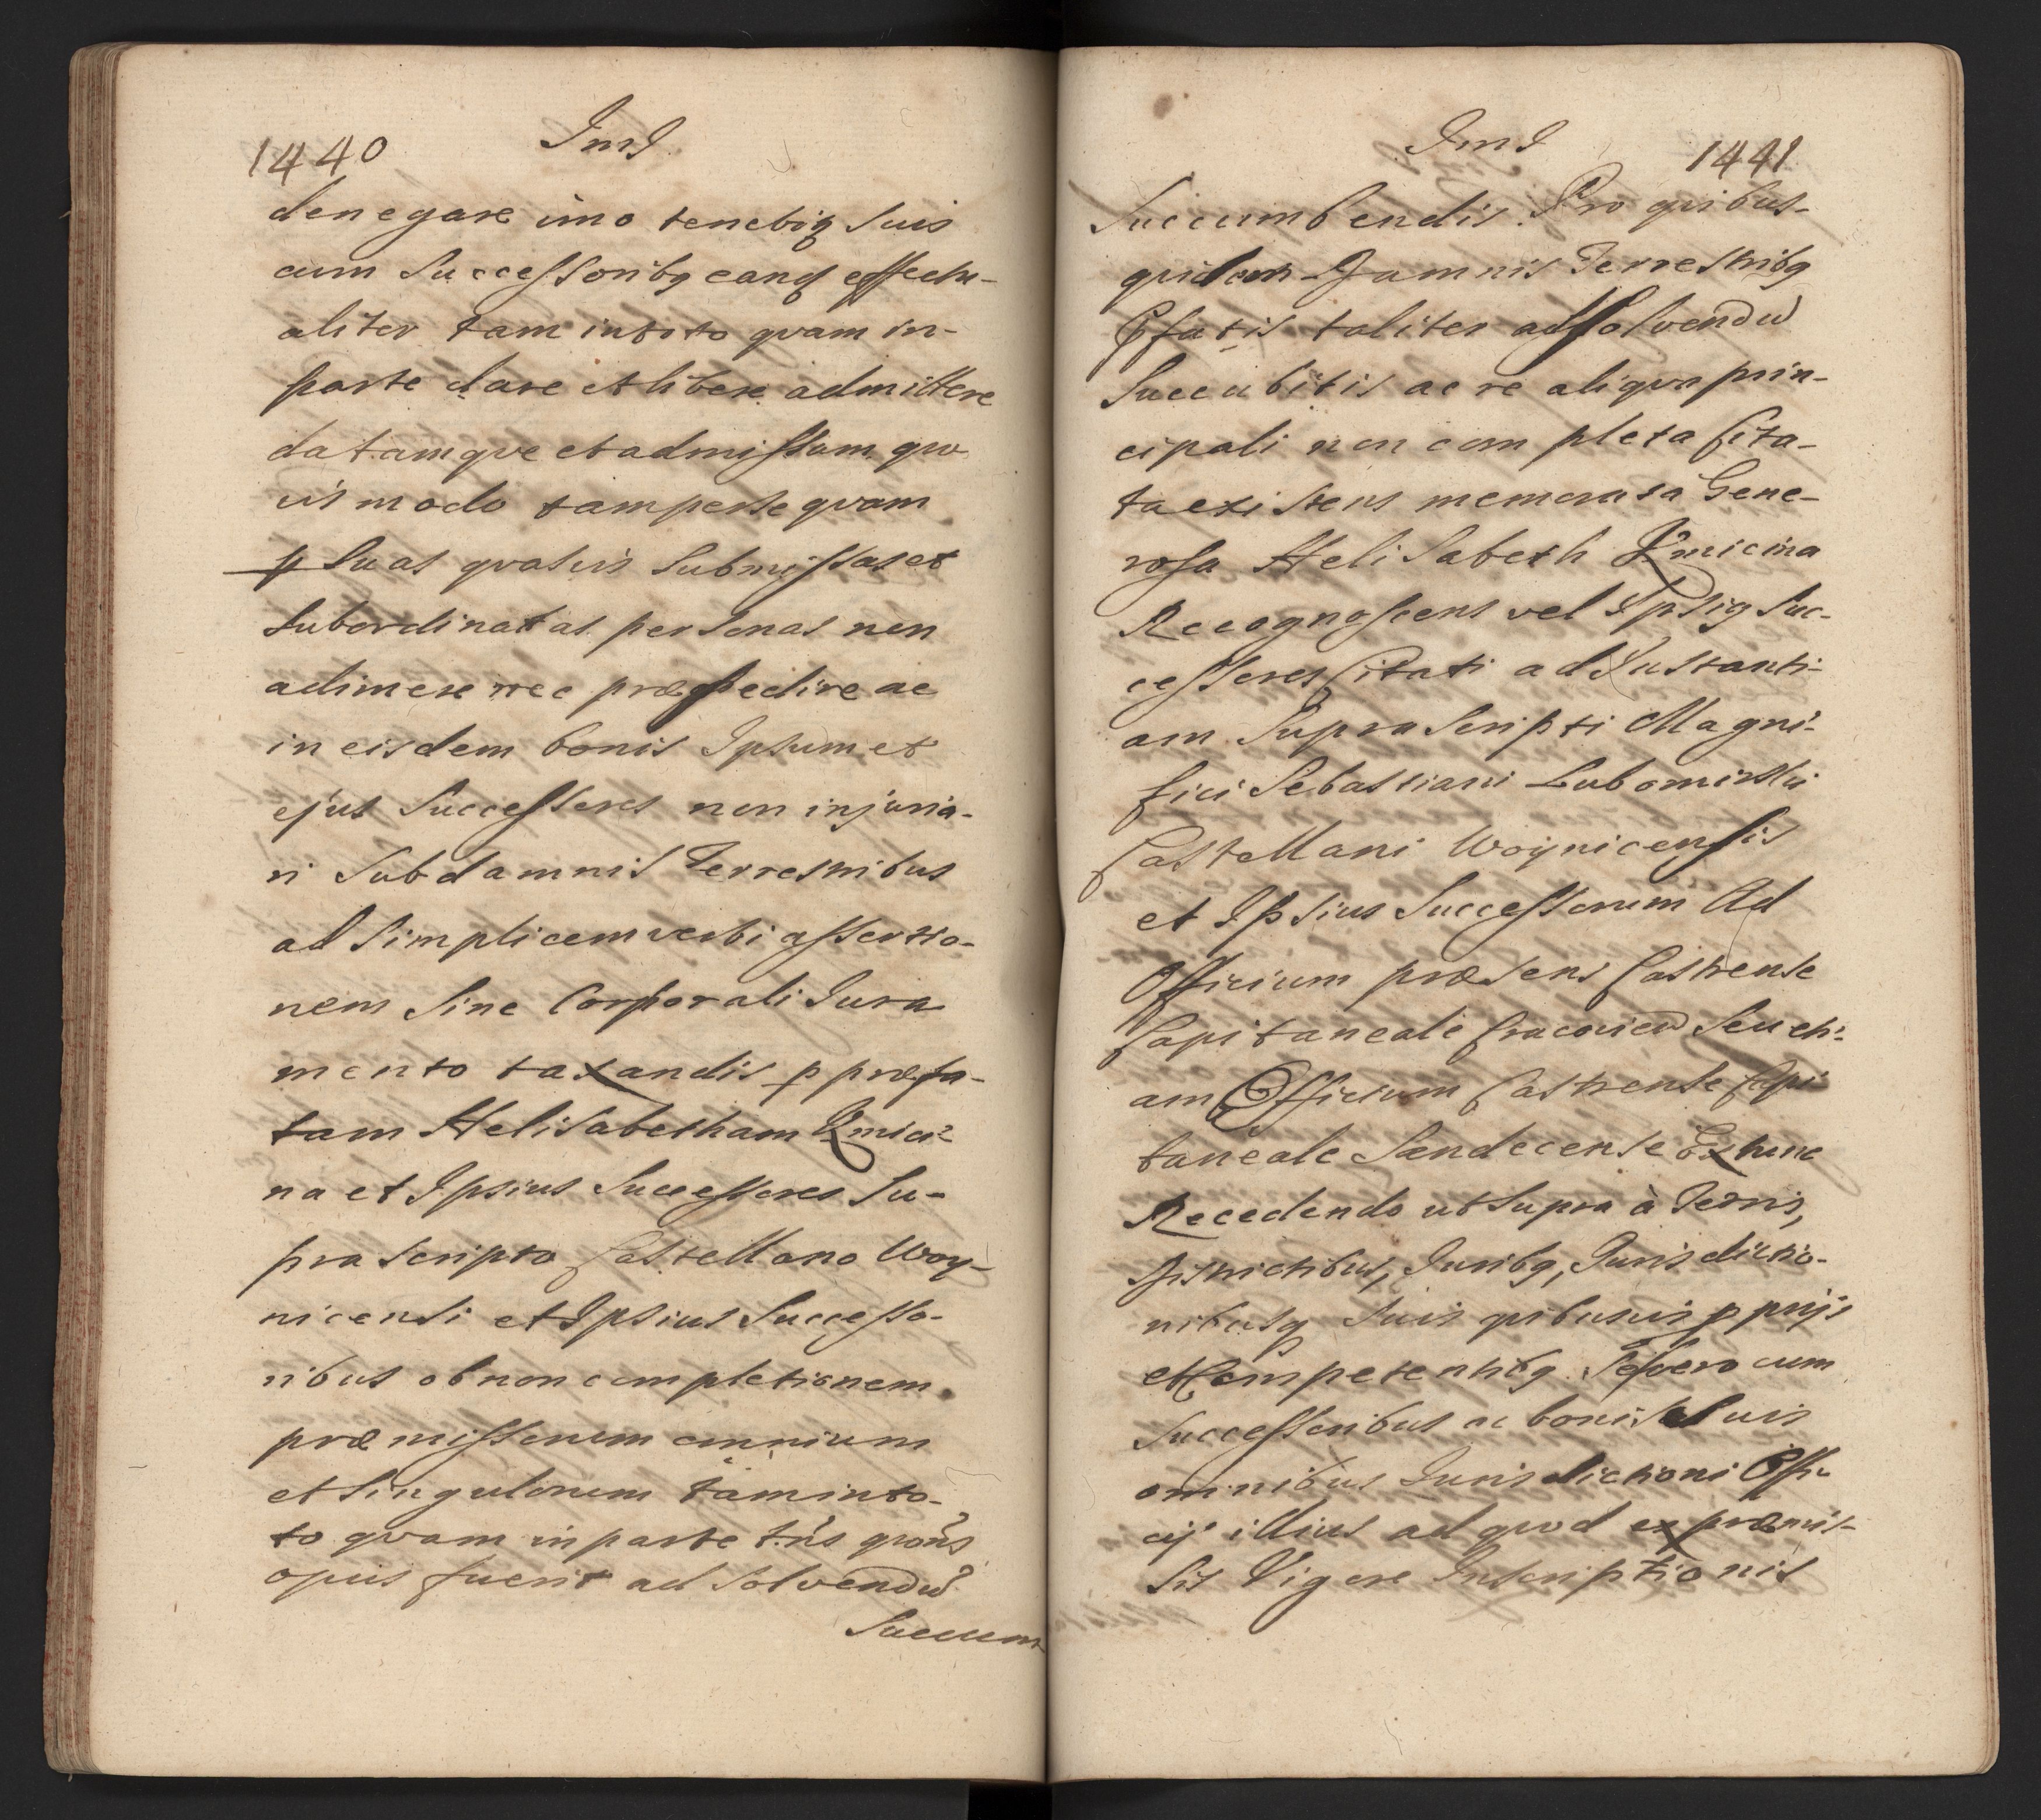 1440 JmJ
denegare imo tenebiq suis
cum Successoribq eandq effectu-
aliter tam in toto qvam in-
parte dare et libere admittere
datamqve et admissam qvo
vis modo tam per se qvam
p suas qvasvis Submissas et
Subordinatas personas non
adimere nec præpedire ac
in eisdem bonis Ipsum et
ejus Successores non injuria-
ri Sub damnis Terrestribus
ad Simplicem verbi assertio-
nem Sine Corporali Jura
mento taxandis p præfa-
tam Helisabetham Kmici-
na et Ipsius Successores Su-
pra scripto Castellano Woy-
nicensi et Ipsius Successo-
ribus ob non completionem
præmissorum omnium
et Singulorum tam in to-
to qvam in parte t.ns qvo.ns
opus fuerit ad Solvendū
Succum
JmJ 1441
Succumbendis. Pro qvibus-
qvidem Damnis Terrestribq
Pfatis taliter adSolvendū
Succubitis ac re aliqva prin-
cipali non completa Cita-
ta existens memorata Gene-
rosa Helisabeth Kmicina
Recognoscens vel Ipsiq Suc-
cessores Citati ad Instanti-
am Supra Scripti Magni-
fici Sebastiani Lubomirski
Castellani Woynicensis
et Ipsius Successorum Ad
Officium præsens Castrense
Capitaneale Cracovień Seu eti-
am Officium Castrense Capi
taneale Sandecense Ex hunc
Recedendo ut Supra à Terris,
Districtibus, Juribq, Jurisdictio-
nibusq Suis qvibusvis pprijs
et Competentibq Se vero cum
Successoribus ac bonis Suis
omnibus Jurisdictioni Offi-
cij illius ad qvod ex præmis-
sis Vigore Inscriptionis